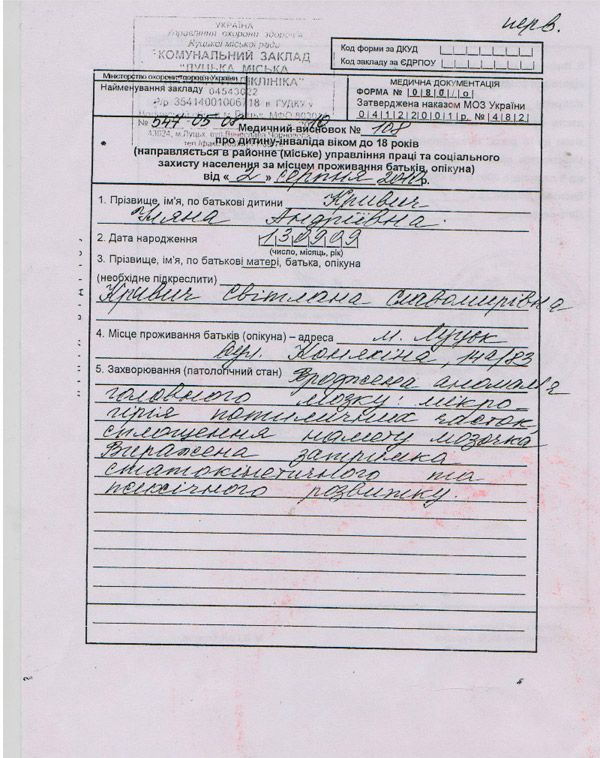 перв.
УКРАЇНА
Управління охорони здоров'я
Луцької міської ради
"КОМУНАЛЬНИЙ ЗАКЛАД
"ЛУЦЬКА МІСЬКА
Код форми за ДКУД
Код закладу за ЄДРПОУ
Міністерство охорони здоров'я України
Найменування закладу 04543022
р/р 35414001006718 в ГУДКУ у
МЕДИЧНА ДОКУМЕНТАЦІЯ
ФОРМА № 080/о
Затверджена наказом МОЗ України
04122001р. № 482
43024, м.Луцьк
Медичний висновок № 108
про дитину-інваліда віком до 18 років
(направляється в районне (міське) управління праці та соціального
захисту населення за місцем проживання батьків, опікуна)
від « 2 » серпня р.
1. Прізвище, ім'я, по батькові дитини Кривич
Уляна Андріївна.
2. Дата народження 130999
(число, місяць, рік)
3. Прізвище, ім'я, по батькові матері, батька, опікуна
(необхідне підкреслити)
Кривич Світлана Славомирівна
4. Місце проживання батьків (опікуна) – адреса м. Луцьк
вул. Конякіна, 14а/83
5. Захворювання (патологічний стан) Вроджена аномалія
головного мозку: мікро-
гірія потиличних часток,
сплощення намету мозочка
Виражена затримка
статокінетичного та
психічного розвитку.